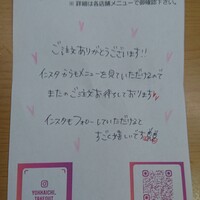 ※ 詳細は各店舗メニューで御確認下さい。
ご注文ありがとうございます!!
インスタからもメニューを見ていただけるので
またのご注文お待ちしております
インスタもフォローしていただけると
すごく嬉しいです
YONHAICHI_
TAKEOUT